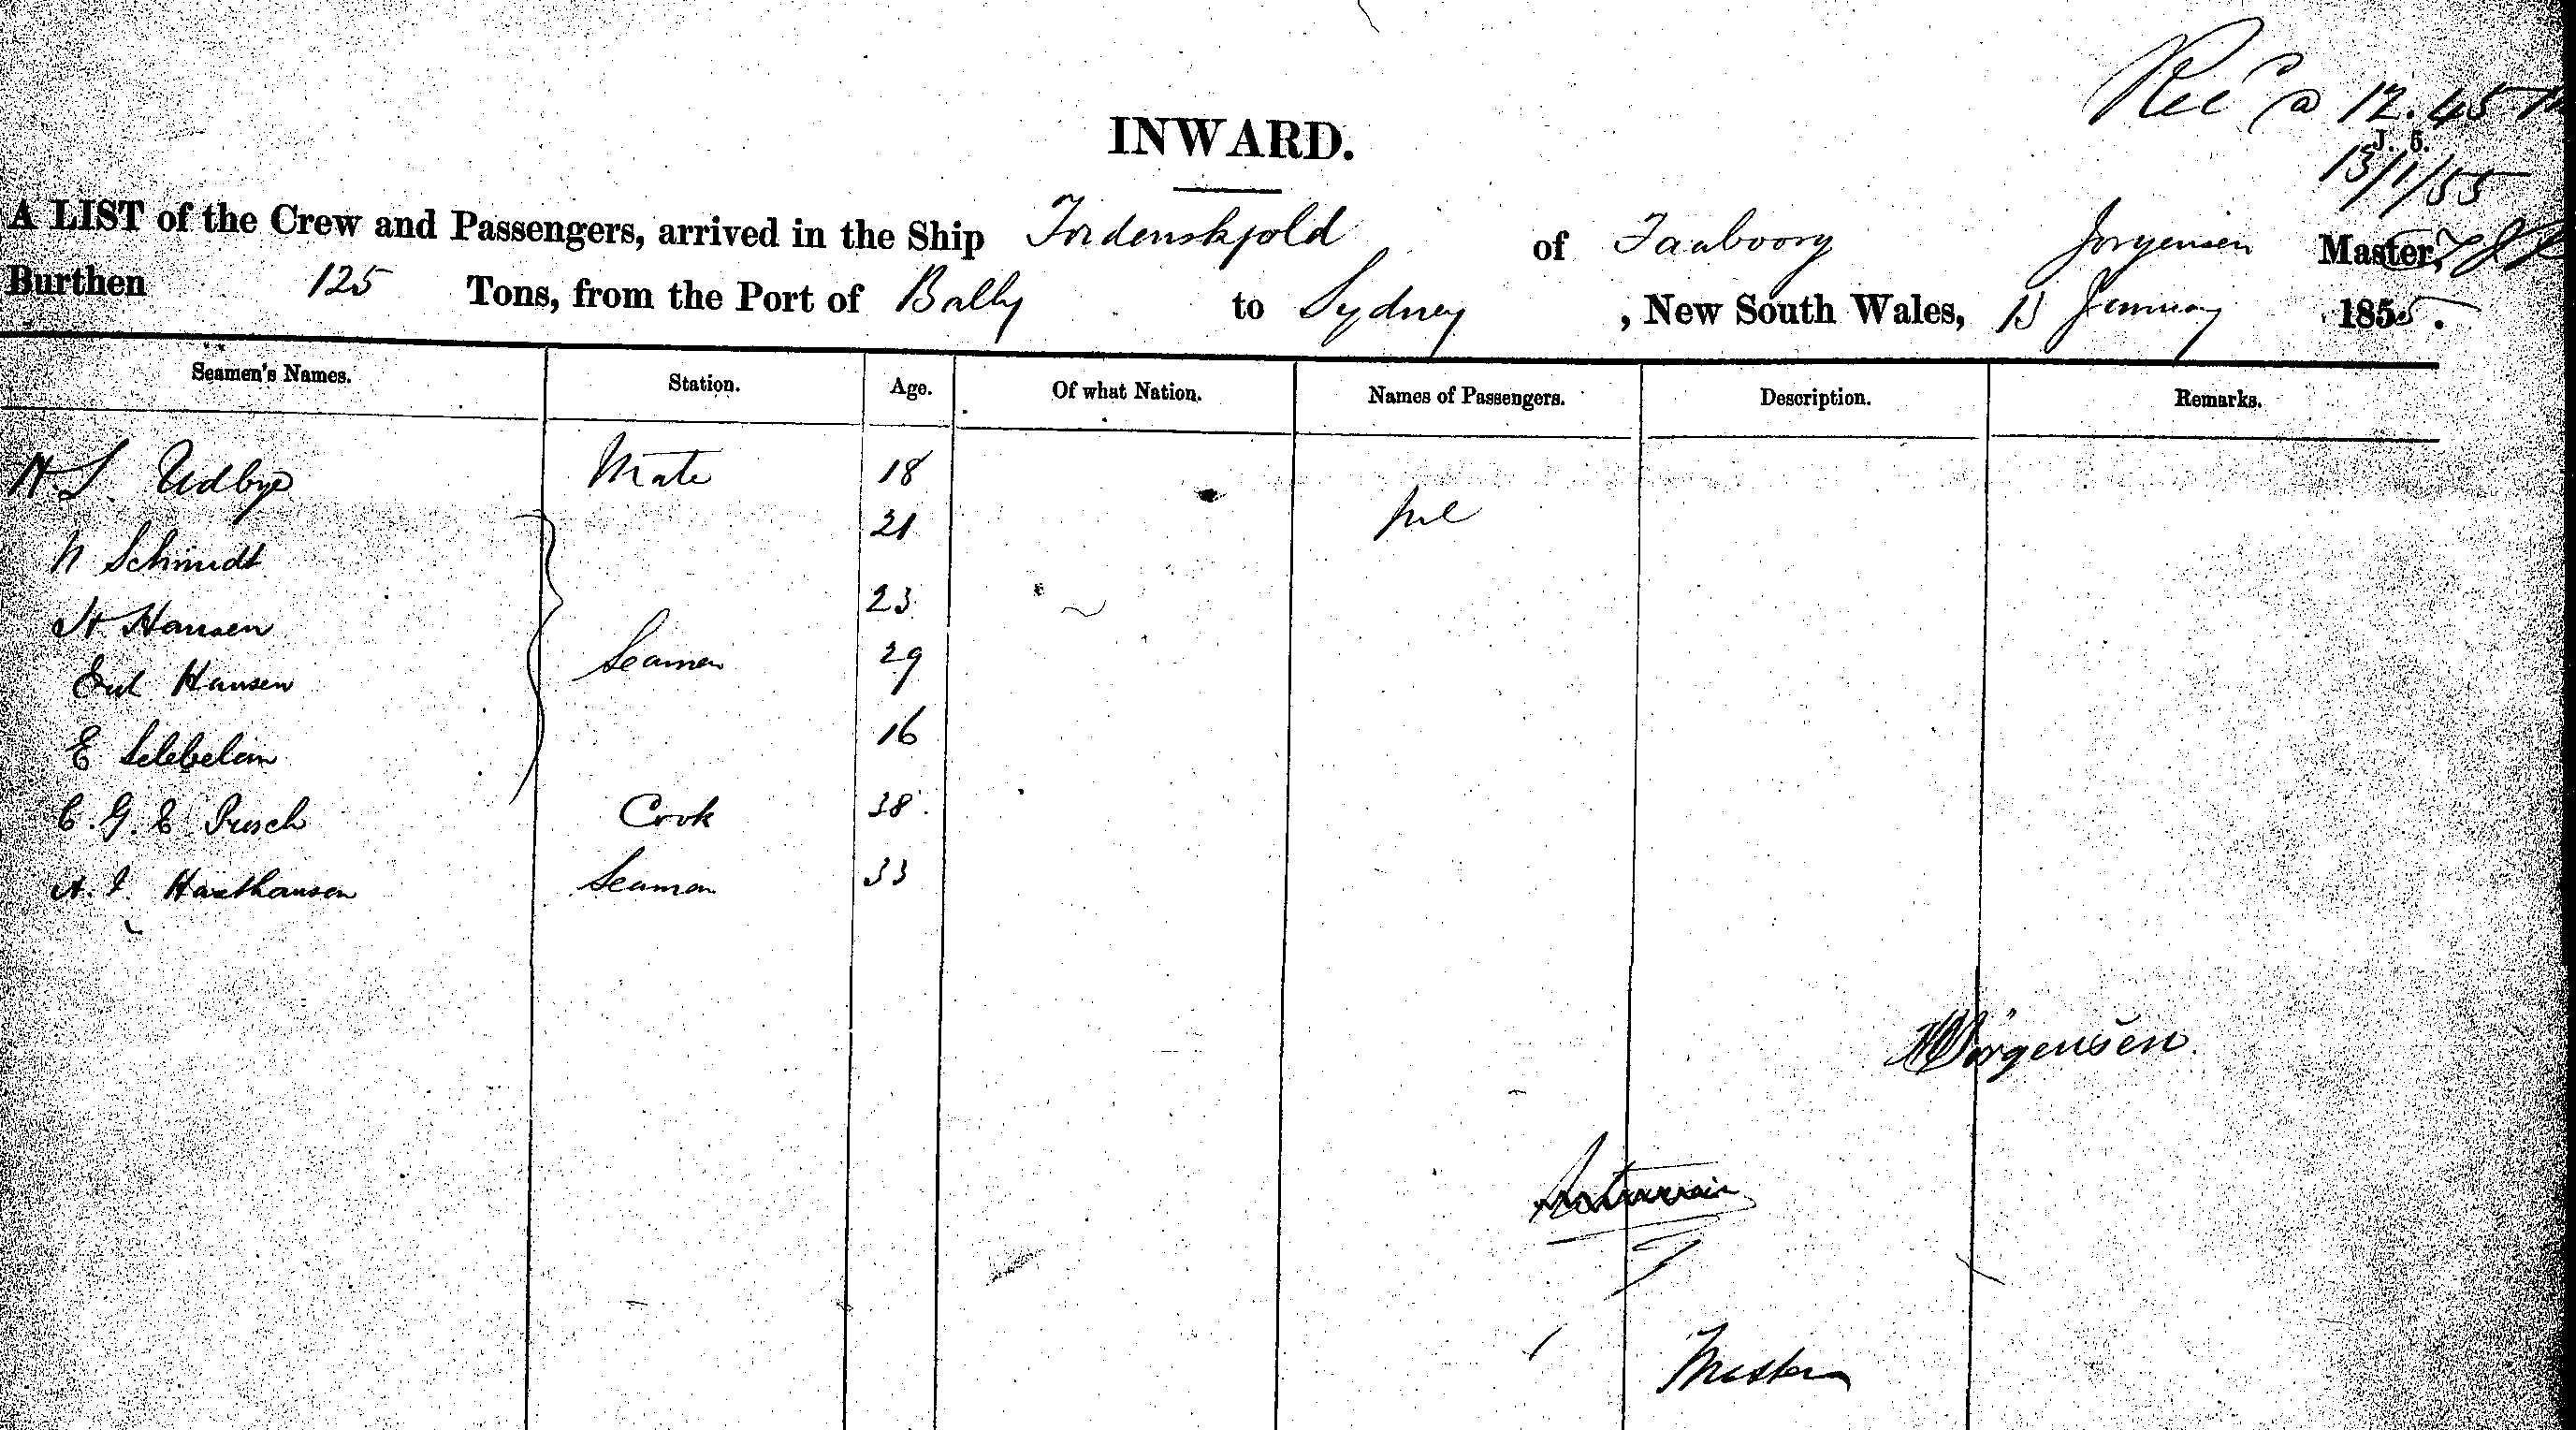 Rec @ 12.45
INWARD.
J. 5.
13/1/55
A LIST of the Crew and Passengers, arrived in the Ship Tordenskjold of Faaboorg Jorgensen Master,
Burthen 125 Tons, from the Port of Bally to Sydney , New South Wales, 13 January 1855.
Seamen's Names. Station. Age. Of what Nation. Names of Passengers. Description. Remarks.
H. L. Udbye Mate 18
nil
N Schmidt 21
H Hansen 23
Hansen Seamen 29
E 16
C. G. E Prusch Cook 38
A. I. Haxthausen Seaman 33
Jörgensen
Master